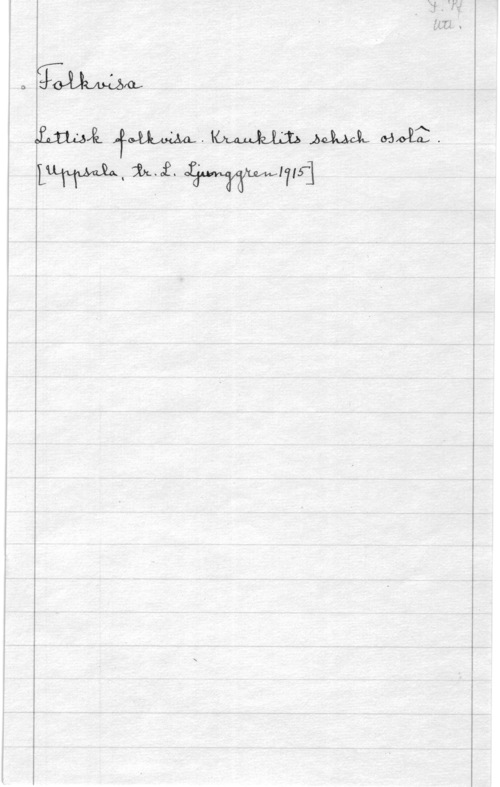 Utl.
Folkvisa
Lettisk folkvisa. Krauklits sehsch osolâ.
[Uppsala, tr. L. Ljunggren 1915]